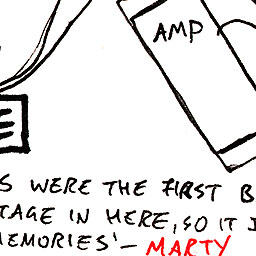 AMP
S WERE THE FIRST B
TAGE IN HERE, SO IT I
MEMORIES' - MARTY